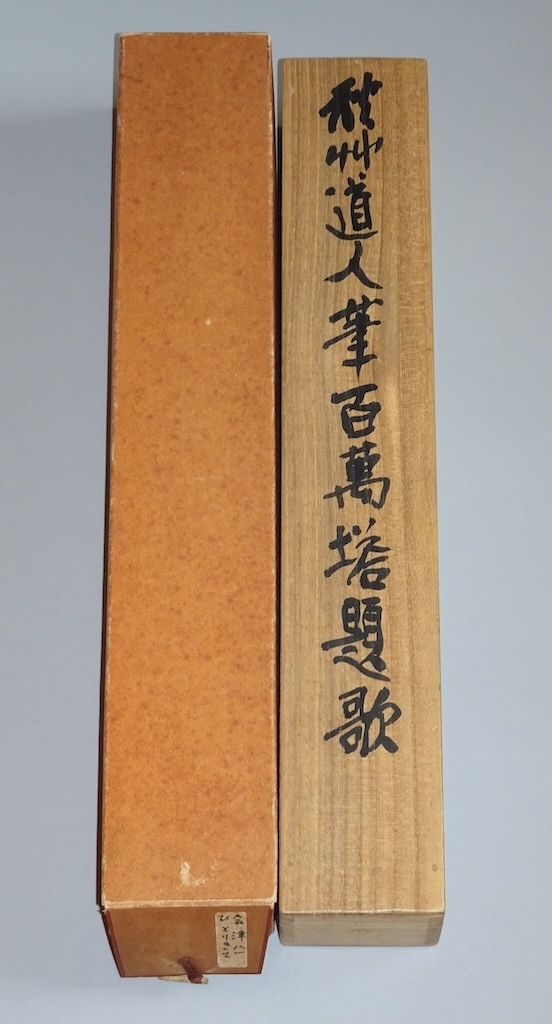 秋艸道人筆百萬塔題歌
会津八一